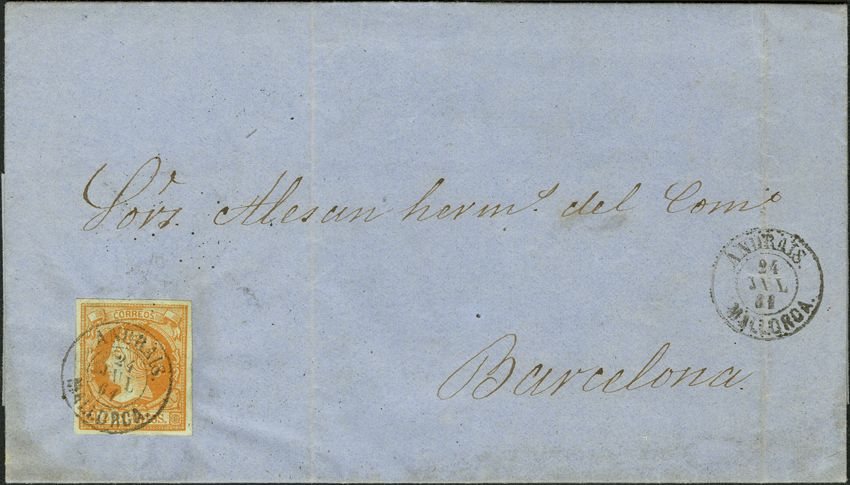 Sors. Alesan herms. del Como
ANDRAIS.
24
JUL
61
MALLORCA.
Barcelona.
CORREOS
ANDRAIS
24
JUL
61
MALLORCA.